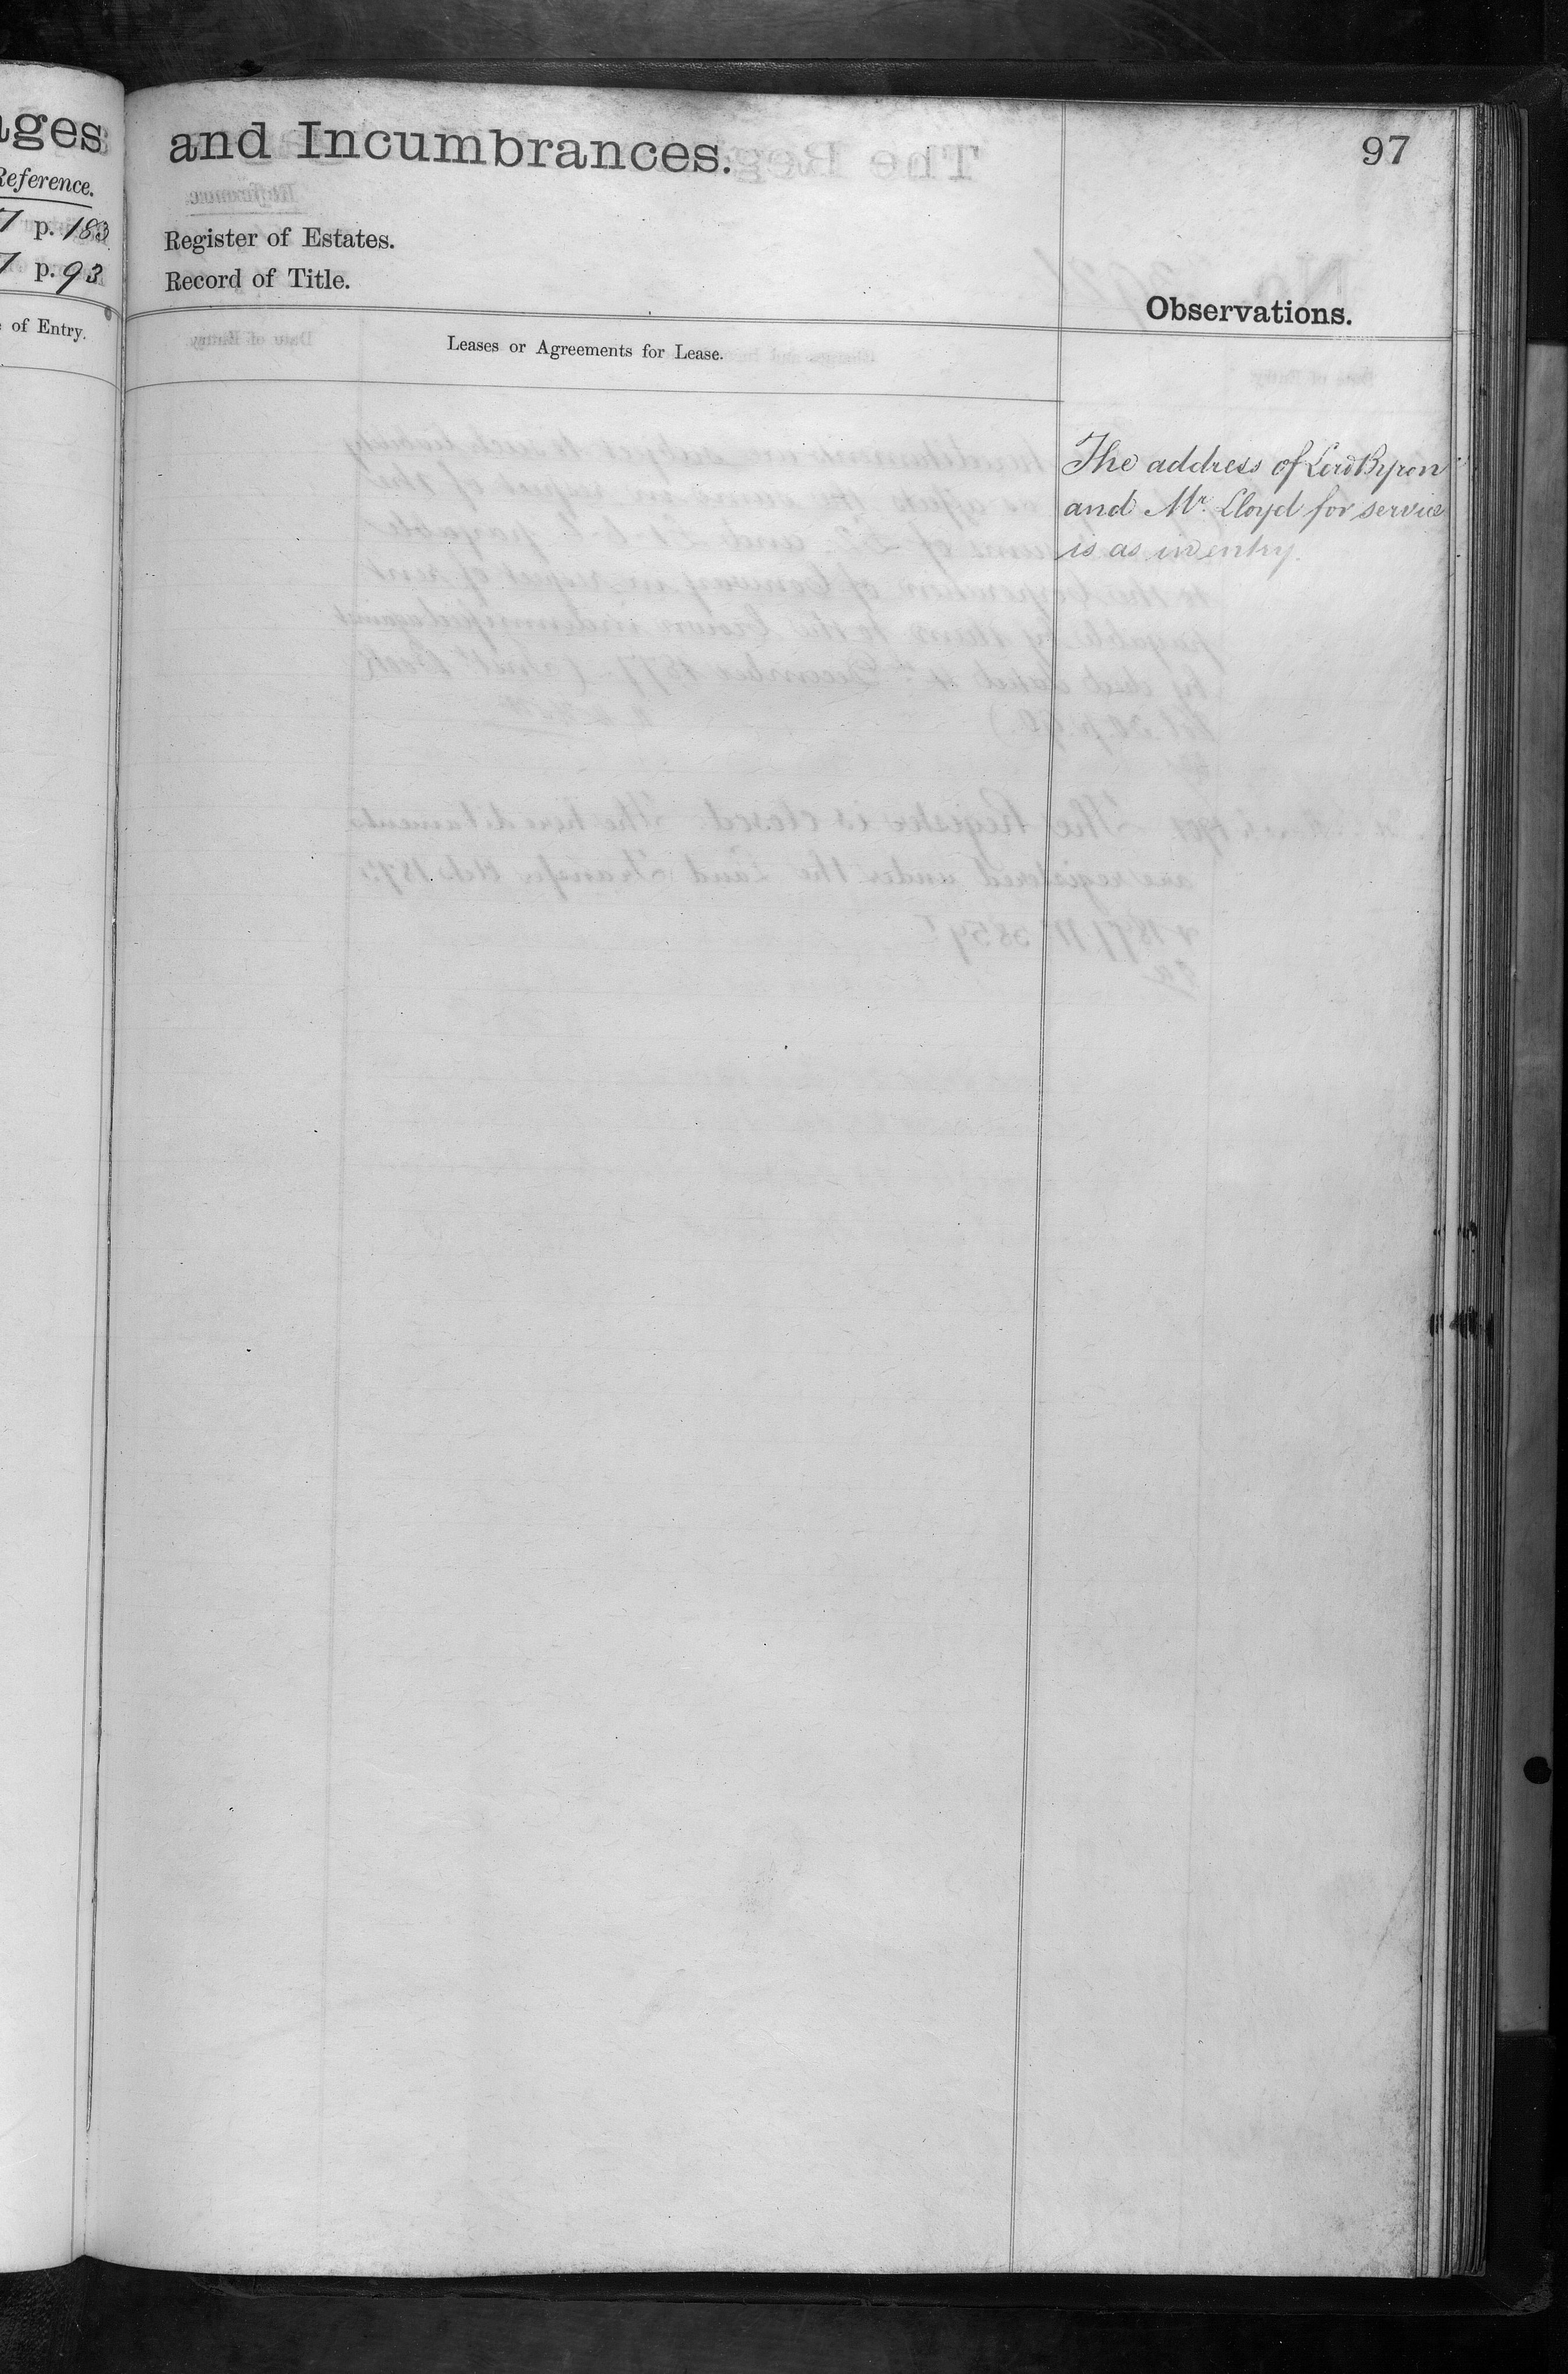 ages
Reference.
7 p. 183
7 p. 93
of Entry.
and Incumbrances.
97
Register of Estates.
Record of Title.
Observations.
Leases or Agreements for Lease.
The address of Lord Byron
and Mr. Lloyd for service
is as in entry.